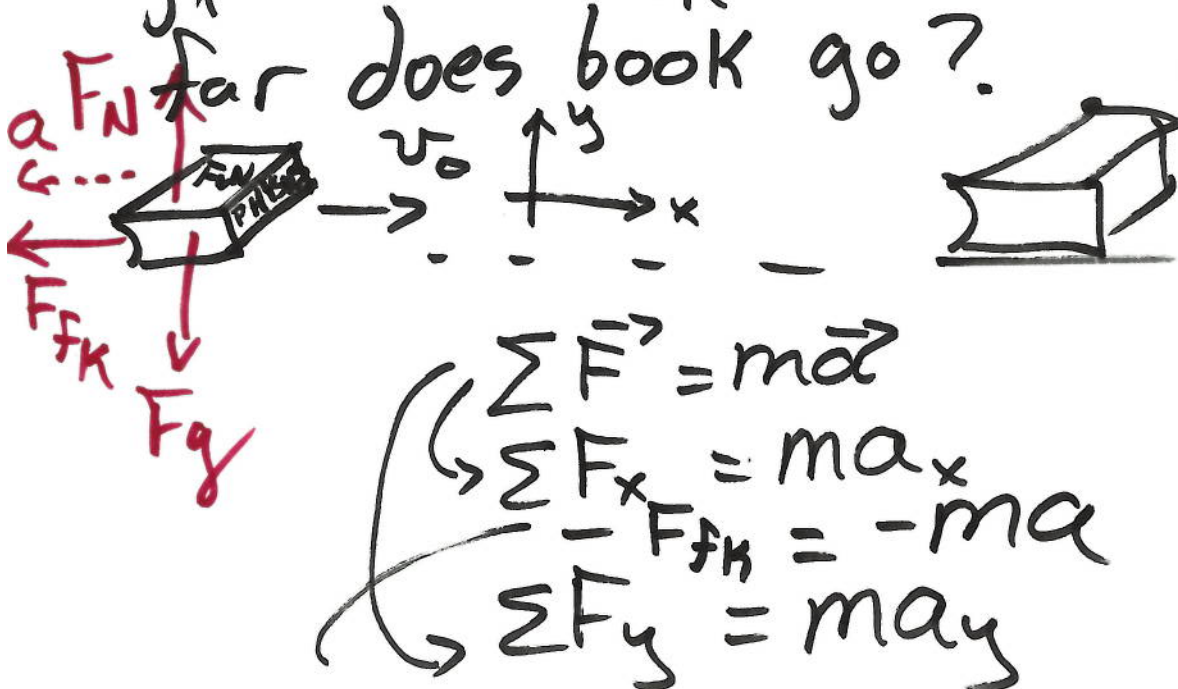 far does book go?
F_N
a
v_0
y
FUN
PHYSICS
x
F_fK
F_g
ΣF⃗ = ma⃗
ΣF_x = ma_x
- F_fK = -ma
ΣF_y = ma_y